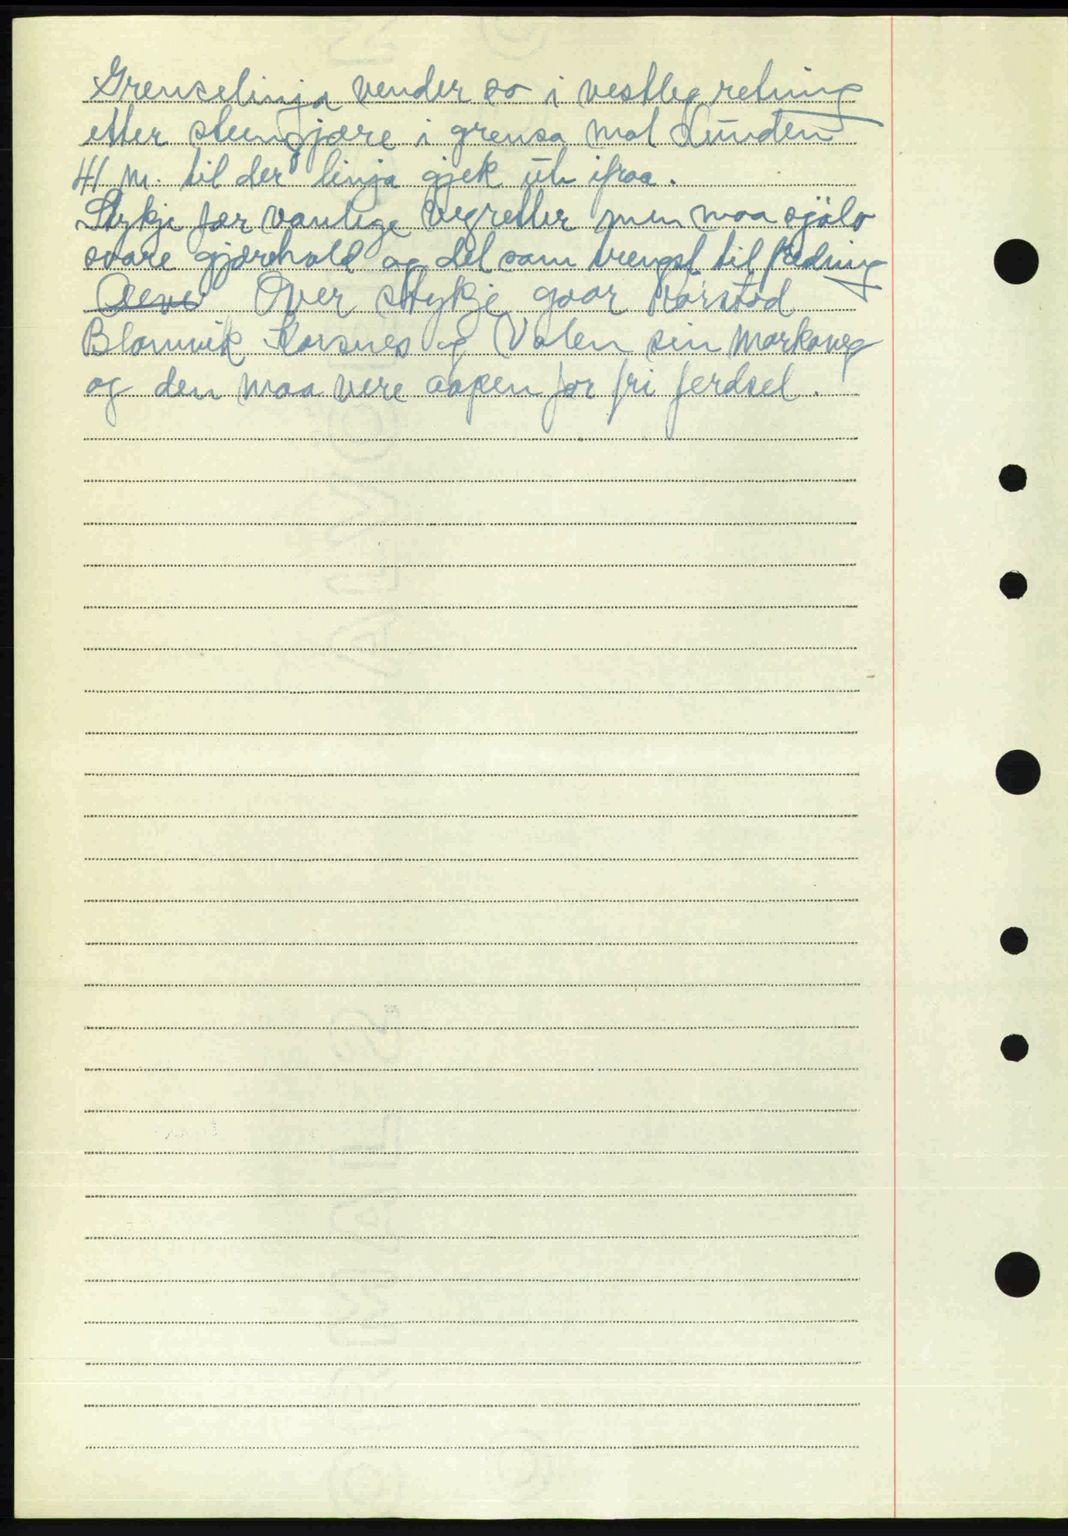 Grenselinja vender so i vestleg retning
etter steingjære i grensa mot Lunden
41 m. til der linja gjek ut ifraa.
Stykje fær vanlige vegretter men maa sjølv
svare gjærehold og det som trengst til fredning
Over stykje gaar Kårstad
Blomvik Karsnes og Valen sin markaveg
og den maa vere aapen for fri ferdsel.